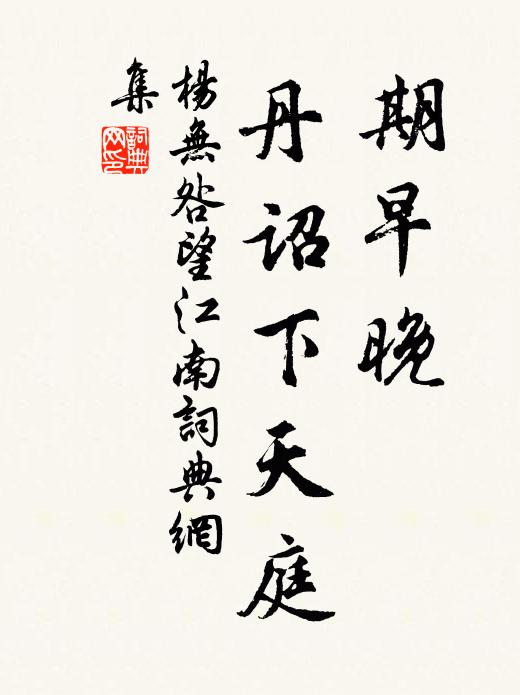 期早晚
丹詔下天庭
楊無咎望江南詞典網
集
詞典網印